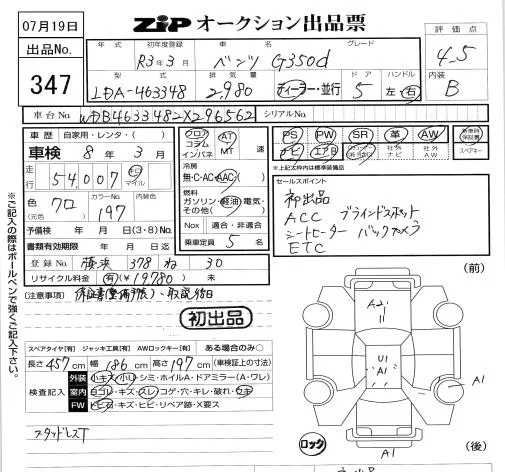 07月19日
出品No.
347
ZIP オークション出品票
評価点
4.5
内装
B
年式 初年度登録 車名 グレード
R3年3月 ベンツ G350d
型式 排気量 ドア ハンドル
LDA-463348 2,980 ディーラー・並行 5 左・右
車台No. WDB4633482X296562 シリアルNo.
車歴 自家用・レンタ・( )
車検 8年 3月
走行 54,007 km マイル
色 クロ (元色) カラーNo. 197 内装色
予備検 年 月 日(3・8)No.
書類有効期限 年 月 日迄
登録No. 横浜 378 ね 30
リサイクル料金 有(¥19780) 未
フロア コラム インパネ AT MT 速
冷房
無・C・AC・AAC・( )
燃料
ガソリン・軽油・電気・その他( )
Nox 適合・非適合
乗車定員 5 名
PS PW SR 革 AW
ナビ エアB 社外ナビ 社外AW
新車時保証書 スペアキー
※上記太枠内は標準装備品
セールスポイント
初出品
ACC ブラインドスポット
シートヒーター バックカメラ
ETC
(注意事項) 保証書(整備手帳)、取説
初出品
※ご記入の際はボールペンで強くご記入下さい。
スペアタイヤ[有] ジャッキ工具[有] AWロックキー[有] ある場合のみ○
長さ 457 cm 幅 186 cm 高さ 197 cm (車検証上の寸法)
検査記入
外装 小キズ・小U・シミ・ホイルA・ドアミラー(A・ワレ)
室内 ヨゴレ・キズ・スレ・コゲ・穴・キレ・破れ・ウキ
FW トビ石・キズ・ヒビ・リペア跡・X要ス
スタッドレスT
(前)
U1
A1
A1
ロック
A1
(後)